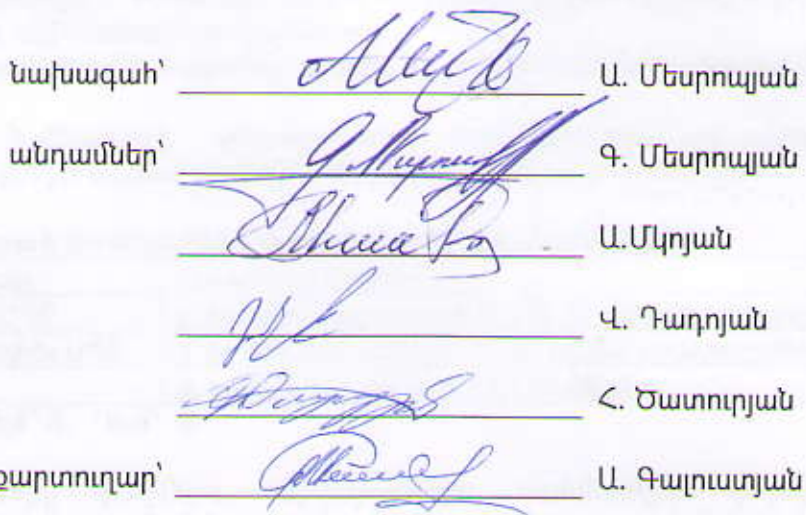 նախագահ՝ Ա. Մեսրոպյան
անդամներ՝ Գ. Մեսրոպյան
Ա.Մկոյան
Վ. Դադոյան
Հ. Ծատուրյան
քարտուղար՝ Ա. Գալուստյան